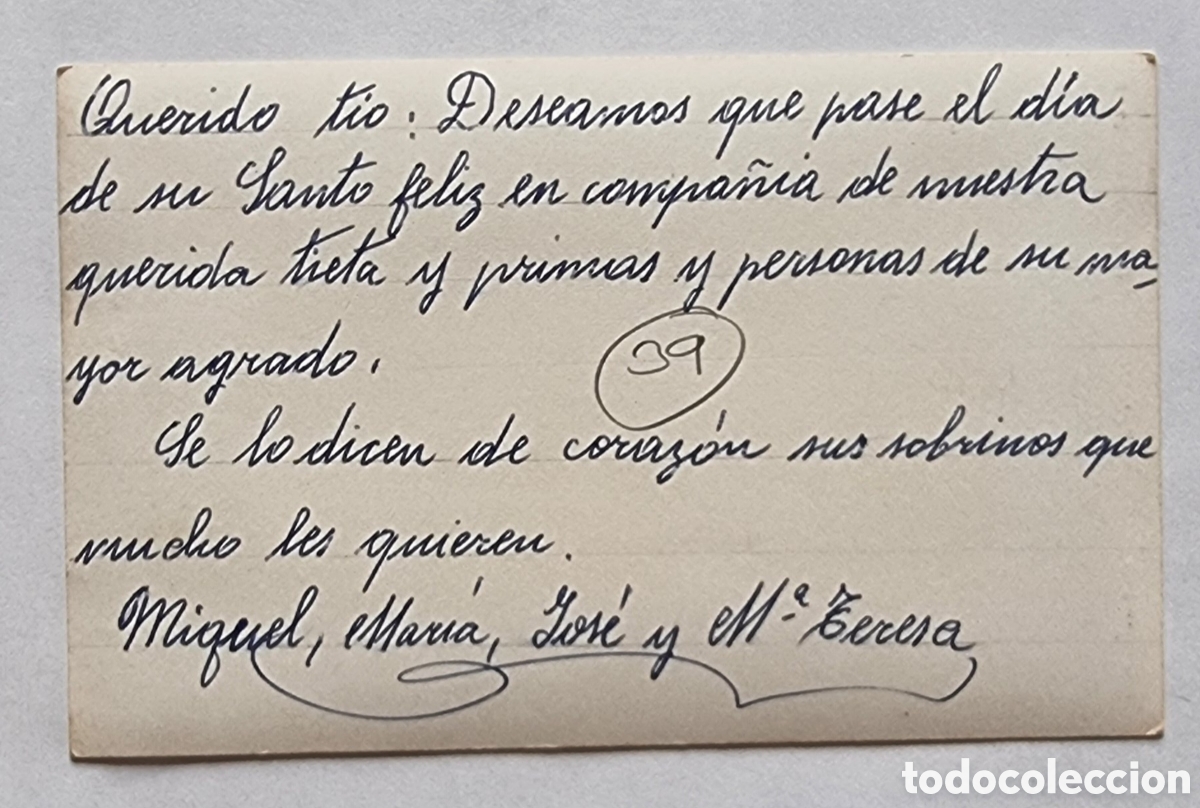 Querido tío: Deseamos que pase el día
de su Santo feliz en compañia de nuestra
querida tieta y primas y personas de su ma-
yor agrado.
39
Se lo dicen de corazón sus sobrinos que
mucho les quieren.
Miguel, María, José y Mª Teresa
todocoleccion